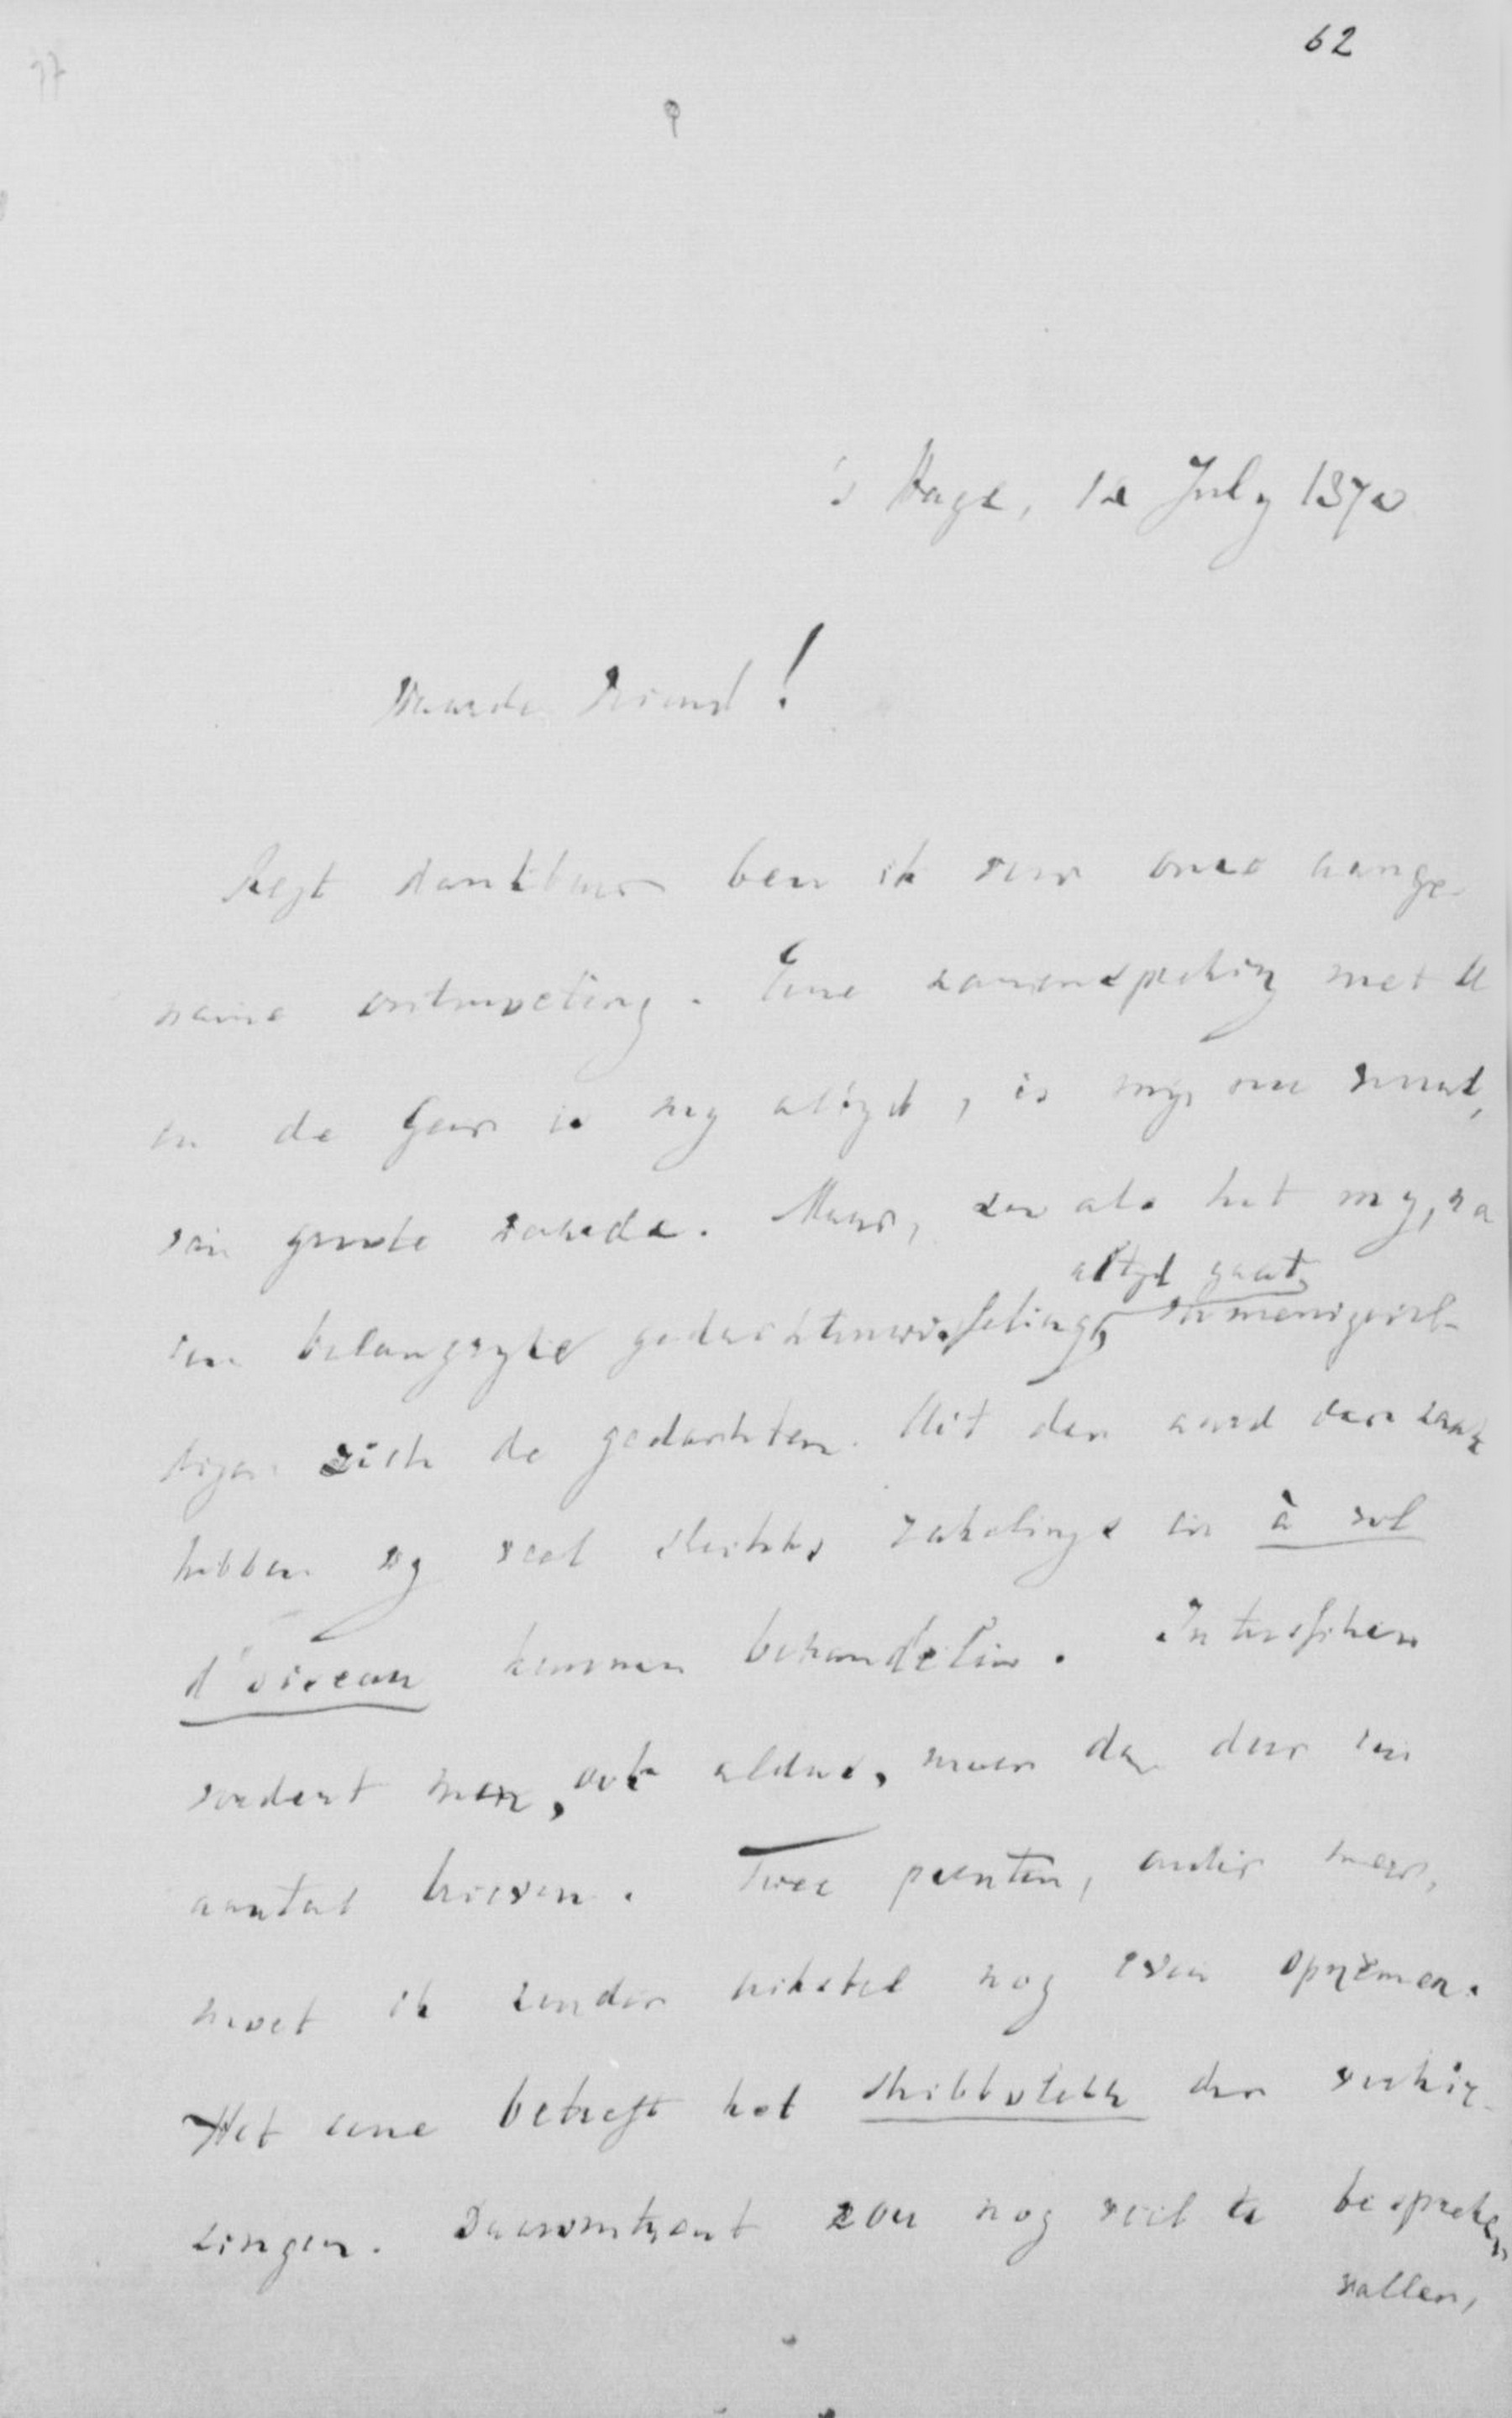 62
's Hage, 12 July 1870
Waarde Vriend!
Regt dankbaar ben ik voor onze aange-
name ontmoeting. Eene zamenspreking met U
en de Geer is my altyd, is my nu vooral,
van groote waarde. Maar, zoo als het my, na
altyd gaat,
een belangryke gedachtenwisseling, vermenigvul-
digen zich de gedachten. Uit den aard der zaak
hebben wy veel slechts zakelings en à vol
d'oiseau kunnen behandelen. Intusschen
vordert men, ook aldus, meer dan door een
aantal brieven. Twee punten, onder meer,
moet ik zonder uitstel nog even opnemen.
Het eene betreft het shibboleth der verkie-
zingen. Daaromtrent zou nog veel te bespreken
vallen,